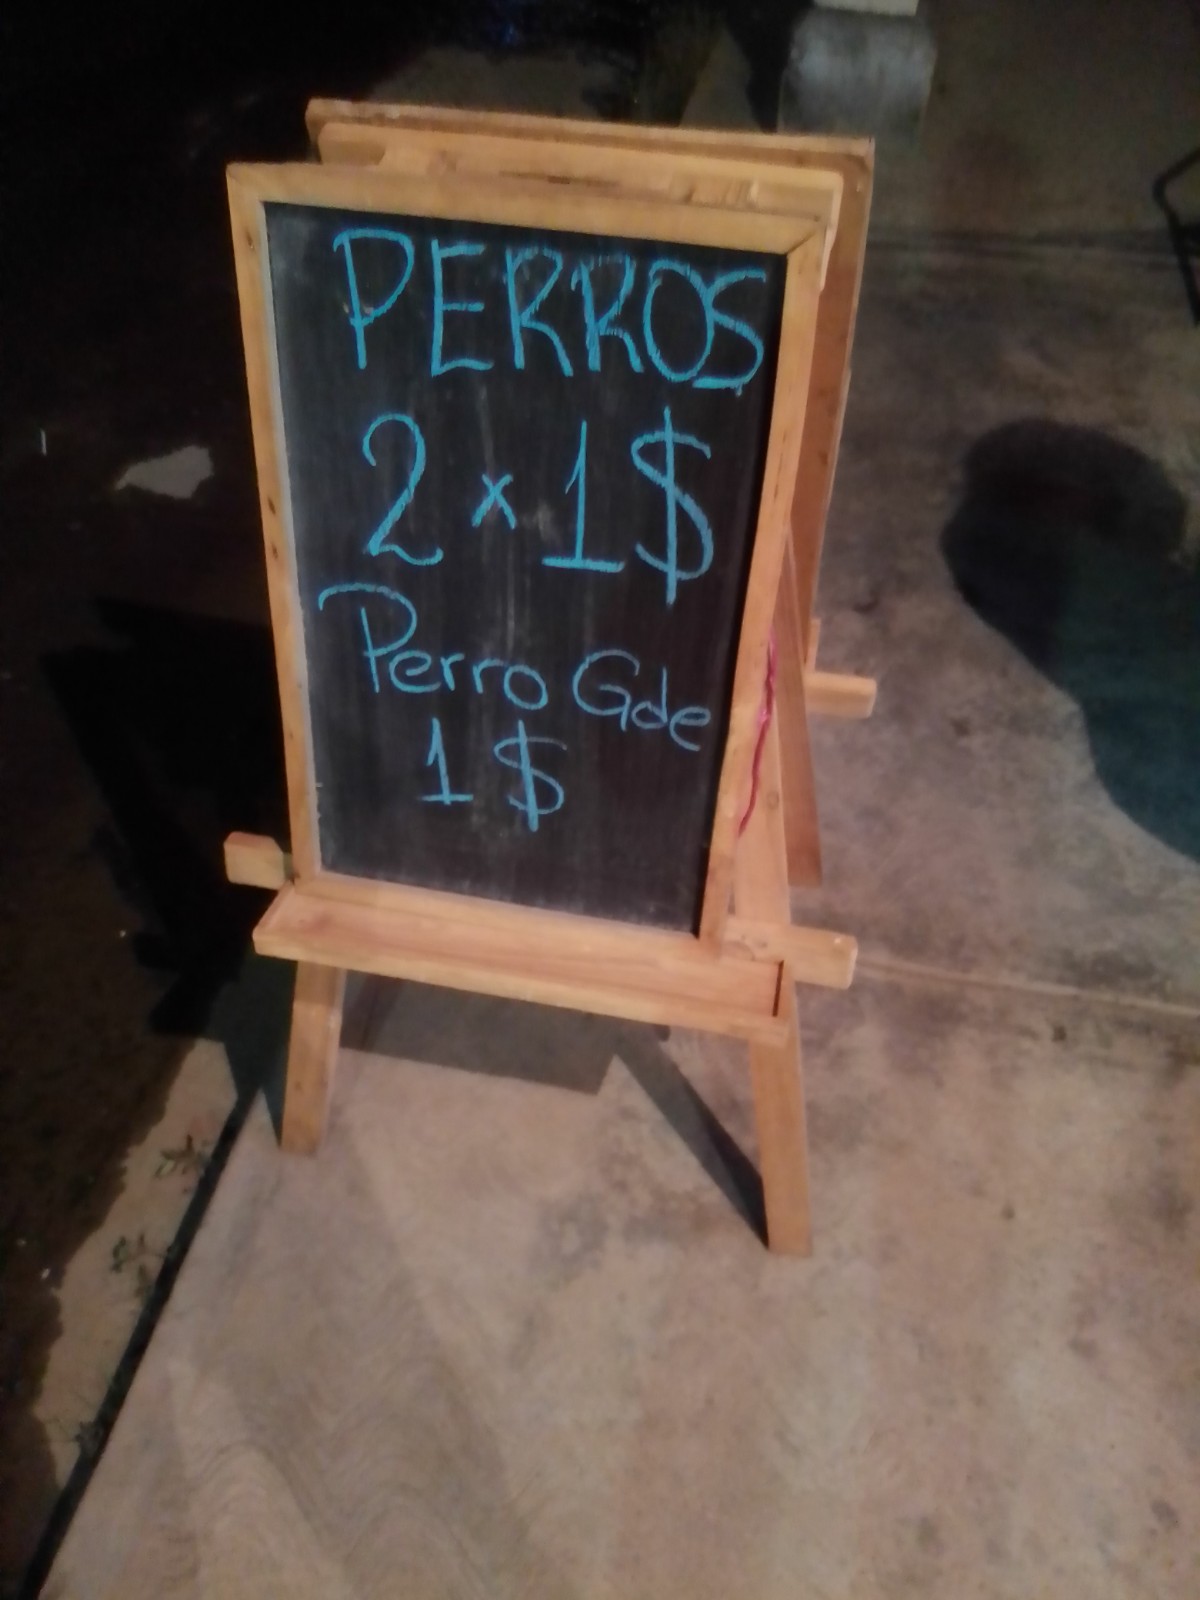 PERROS
2 x 1$
Perro Gde
1$